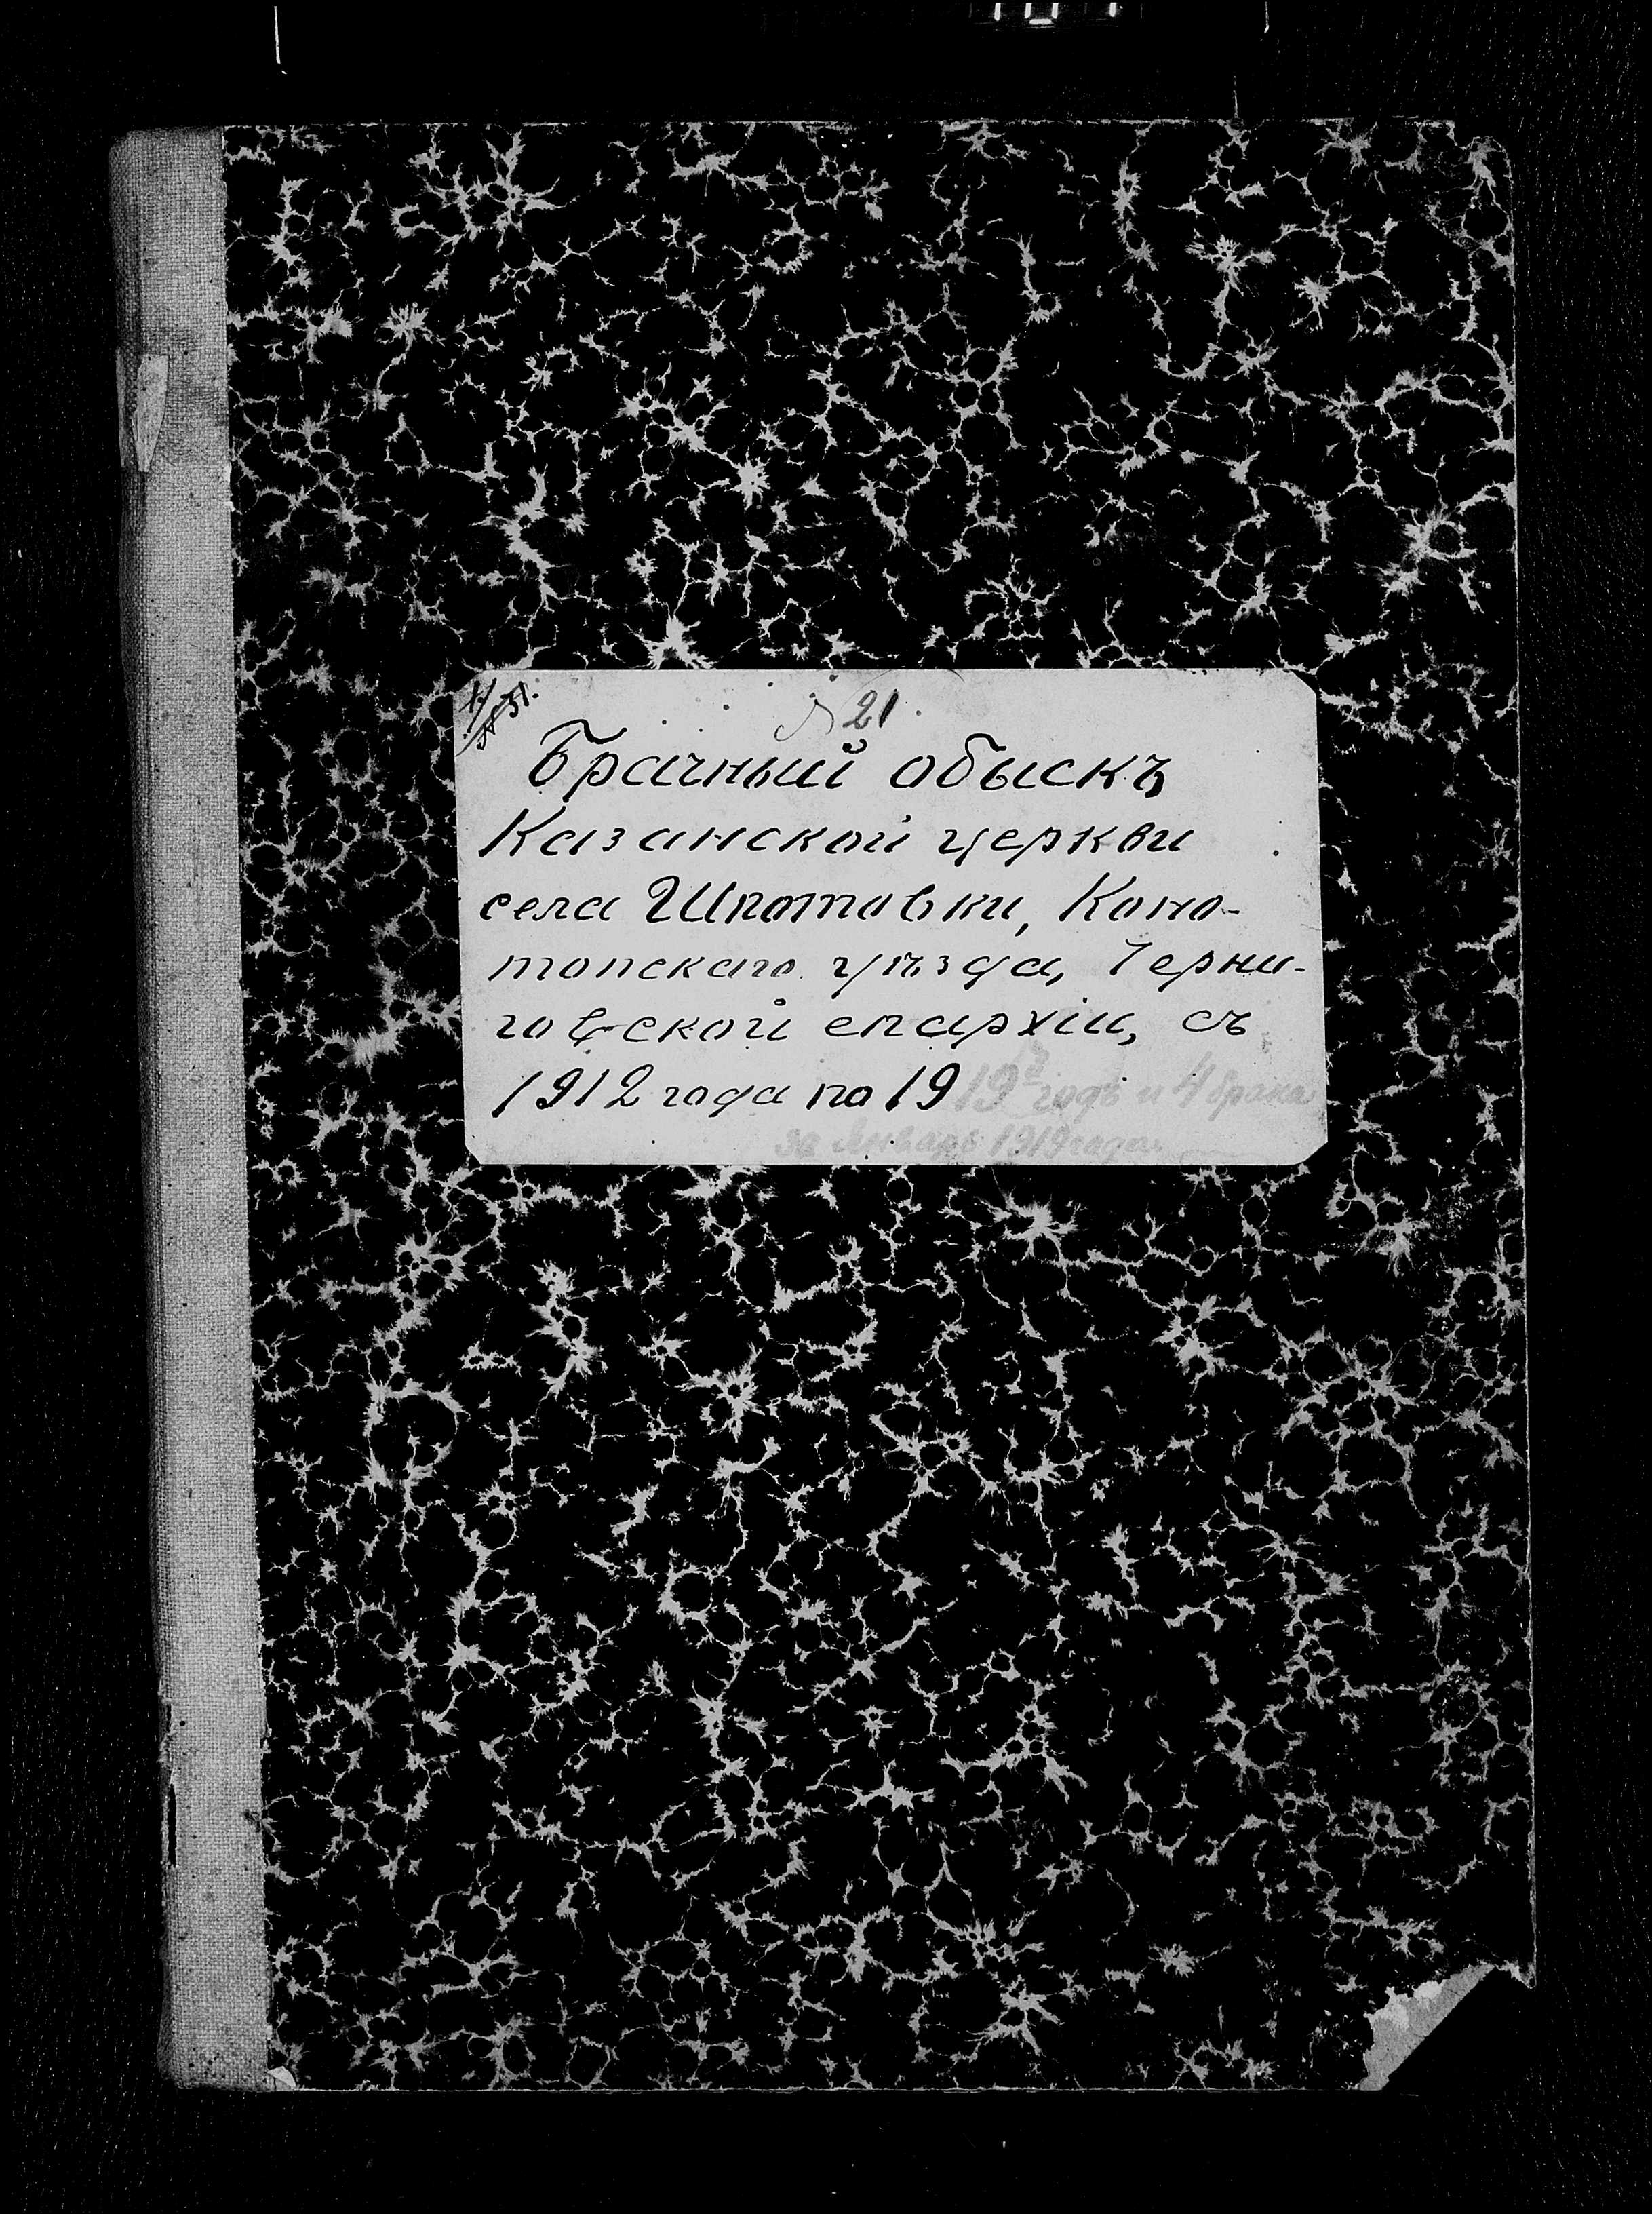 № 31.
№ 21
Брачный обыскъ
Казанской церкви
села Шпотовки, Коно-
топскаго уѣзда, Черни-
говской епархіи, съ
1912 года по 1919й годъ и 4 брака
за Январь 1919 года.